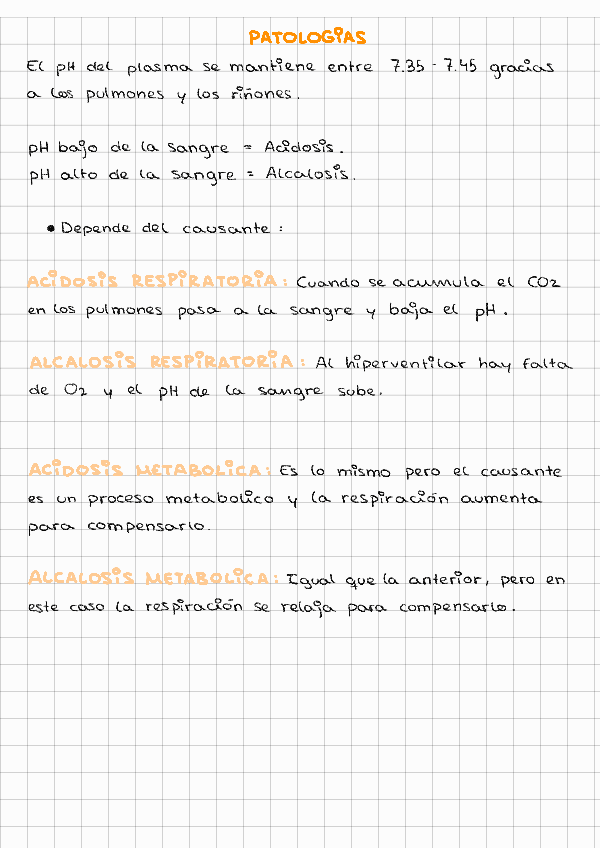 PATOLOGÍAS
El pH del plasma se mantiene entre 7.35 - 7.45 gracias
a los pulmones y los riñones.
pH bajo de la sangre = Acidosis.
pH alto de la sangre = Alcalosis.
• Depende del causante :
ACIDOSIS RESPIRATORIA: Cuando se acumula el CO2
en los pulmones pasa a la sangre y baja el pH.
ALCALOSIS RESPIRATORIA: Al hiperventilar hay falta
de O2 y el pH de la sangre sube.
ACIDOSIS METABOLICA: Es lo mismo pero el causante
es un proceso metabolico y la respiración aumenta
para compensarlo.
ALCALOSIS METABOLICA: Igual que la anterior, pero en
este caso la respiración se relaja para compensarlo.